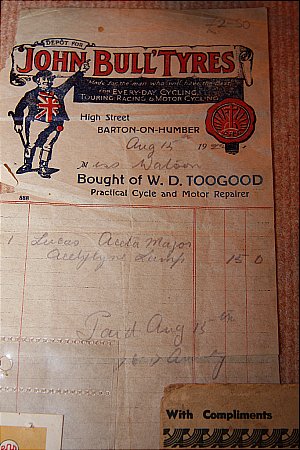 DEPOT FOR
JOHN BULL TYRES
Made for the man who will have the Best
FOR EVERY-DAY CYCLING
TOURING RACING & MOTOR CYCLING
High Street
BARTON-ON-HUMBER
Aug 15th 19
Miss Watson
Bought of W. D. TOOGOOD
Practical Cycle and Motor Repairer
1 Lucas Aceta Major
Acetylene Lamp 15 0
Paid Aug 15th
With Compliments